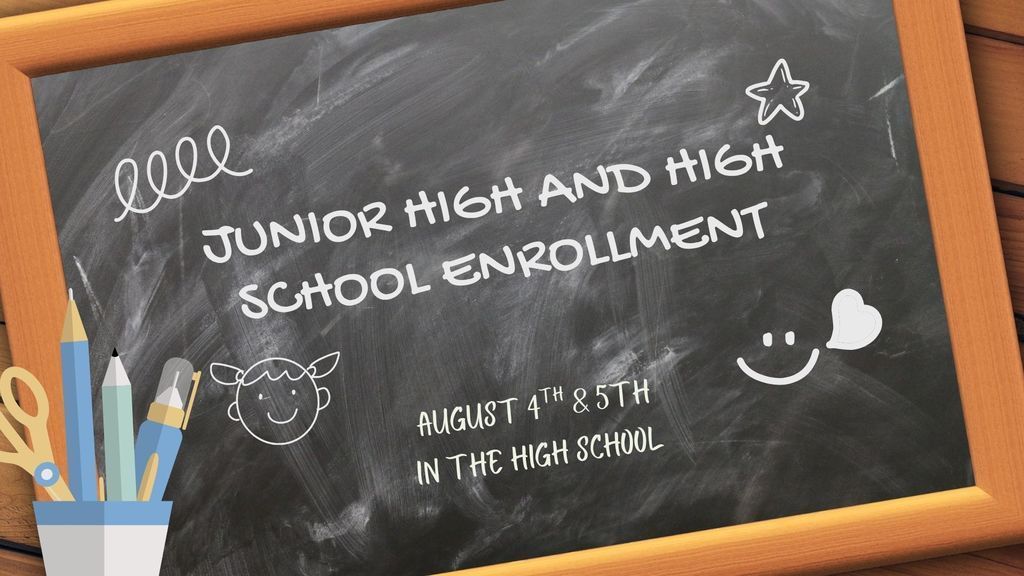 JUNIOR HIGH AND HIGH
SCHOOL ENROLLMENT
AUGUST 4TH & 5TH
IN THE HIGH SCHOOL